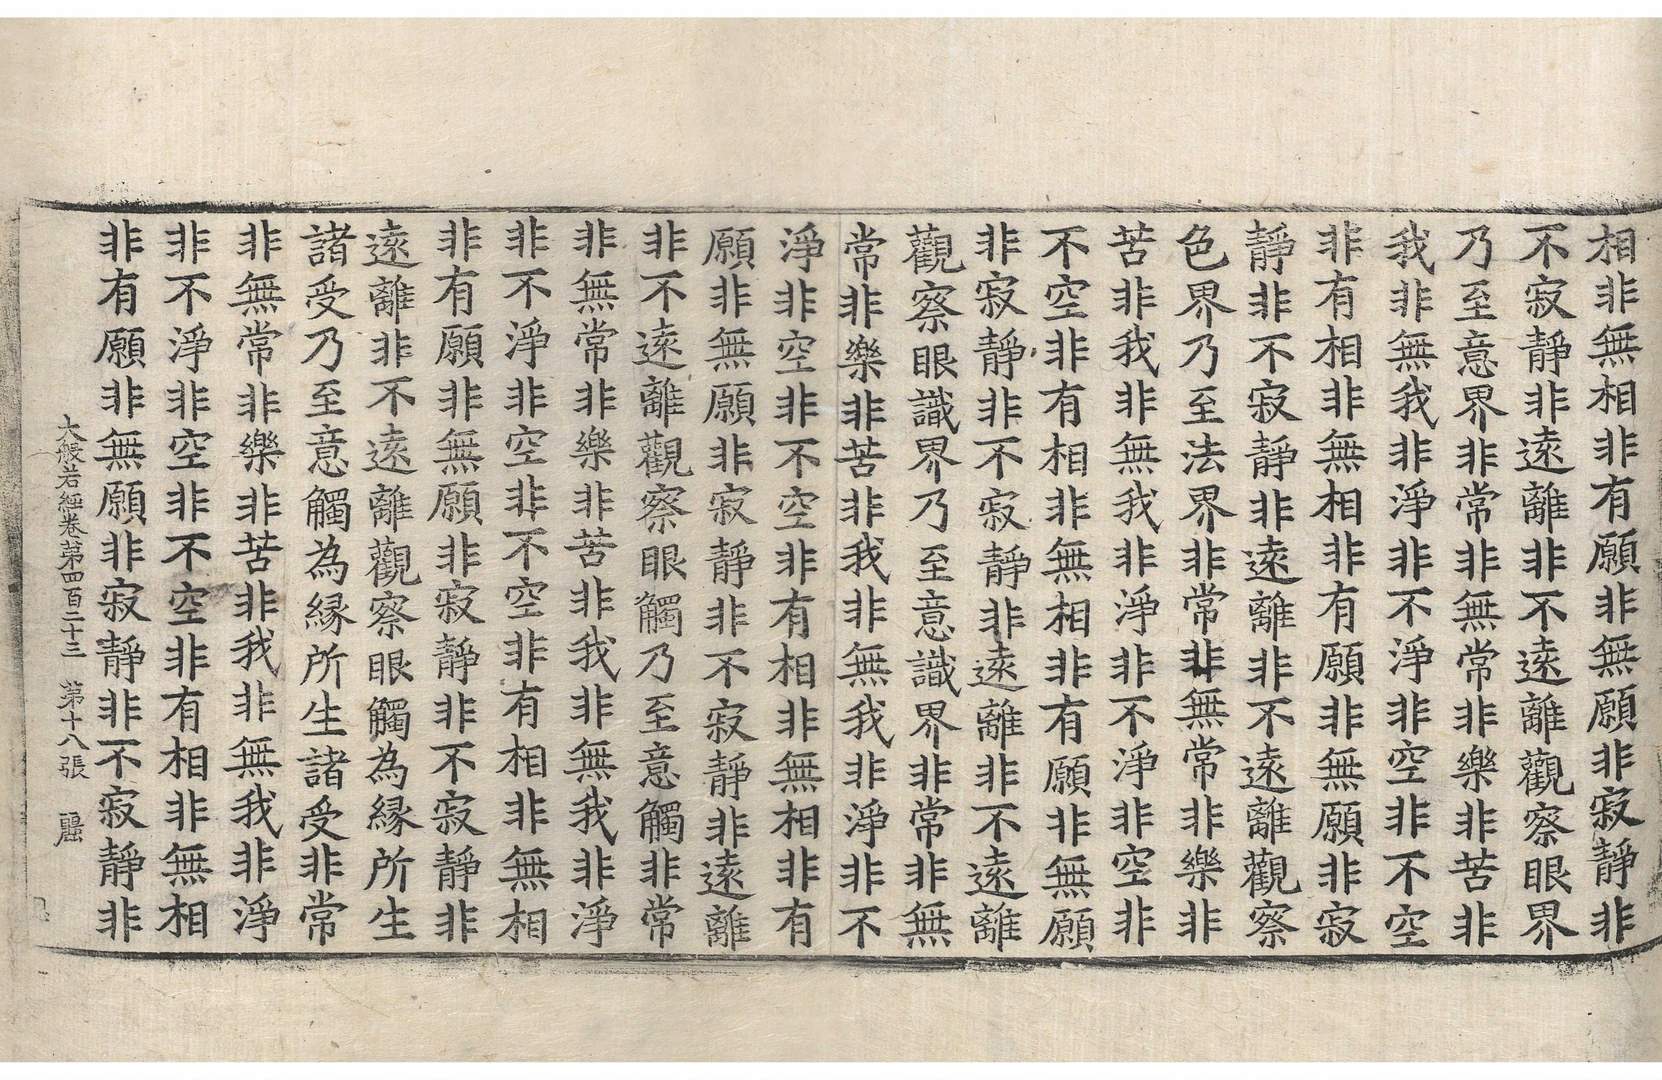 相非無相非有願非無願非寂靜非
不寂靜非遠離非不遠離觀察眼界
乃至意界非常非無常非樂非苦非
我非無我非淨非不淨非空非不空
非有相非無相非有願非無願非寂
靜非不寂靜非遠離非不遠離觀察
色界乃至法界非常非無常非樂非
苦非我非無我非淨非不淨非空非
不空非有相非無相非有願非無願
非寂靜非不寂靜非遠離非不遠離
觀察眼識界乃至意識界非常非無
常非樂非苦非我非無我非淨非不
淨非空非不空非有相非無相非有
願非無願非寂靜非不寂靜非遠離
非不遠離觀察眼觸乃至意觸非常
非無常非樂非苦非我非無我非淨
非不淨非空非不空非有相非無相
非有願非無願非寂靜非不寂靜非
遠離非不遠離觀察眼觸為縁所生
諸受乃至意觸為縁所生諸受非常
非無常非樂非苦非我非無我非淨
非不淨非空非不空非有相非無相
非有願非無願非寂靜非不寂靜非
大般若經卷第四百二十三 第十八張 麗